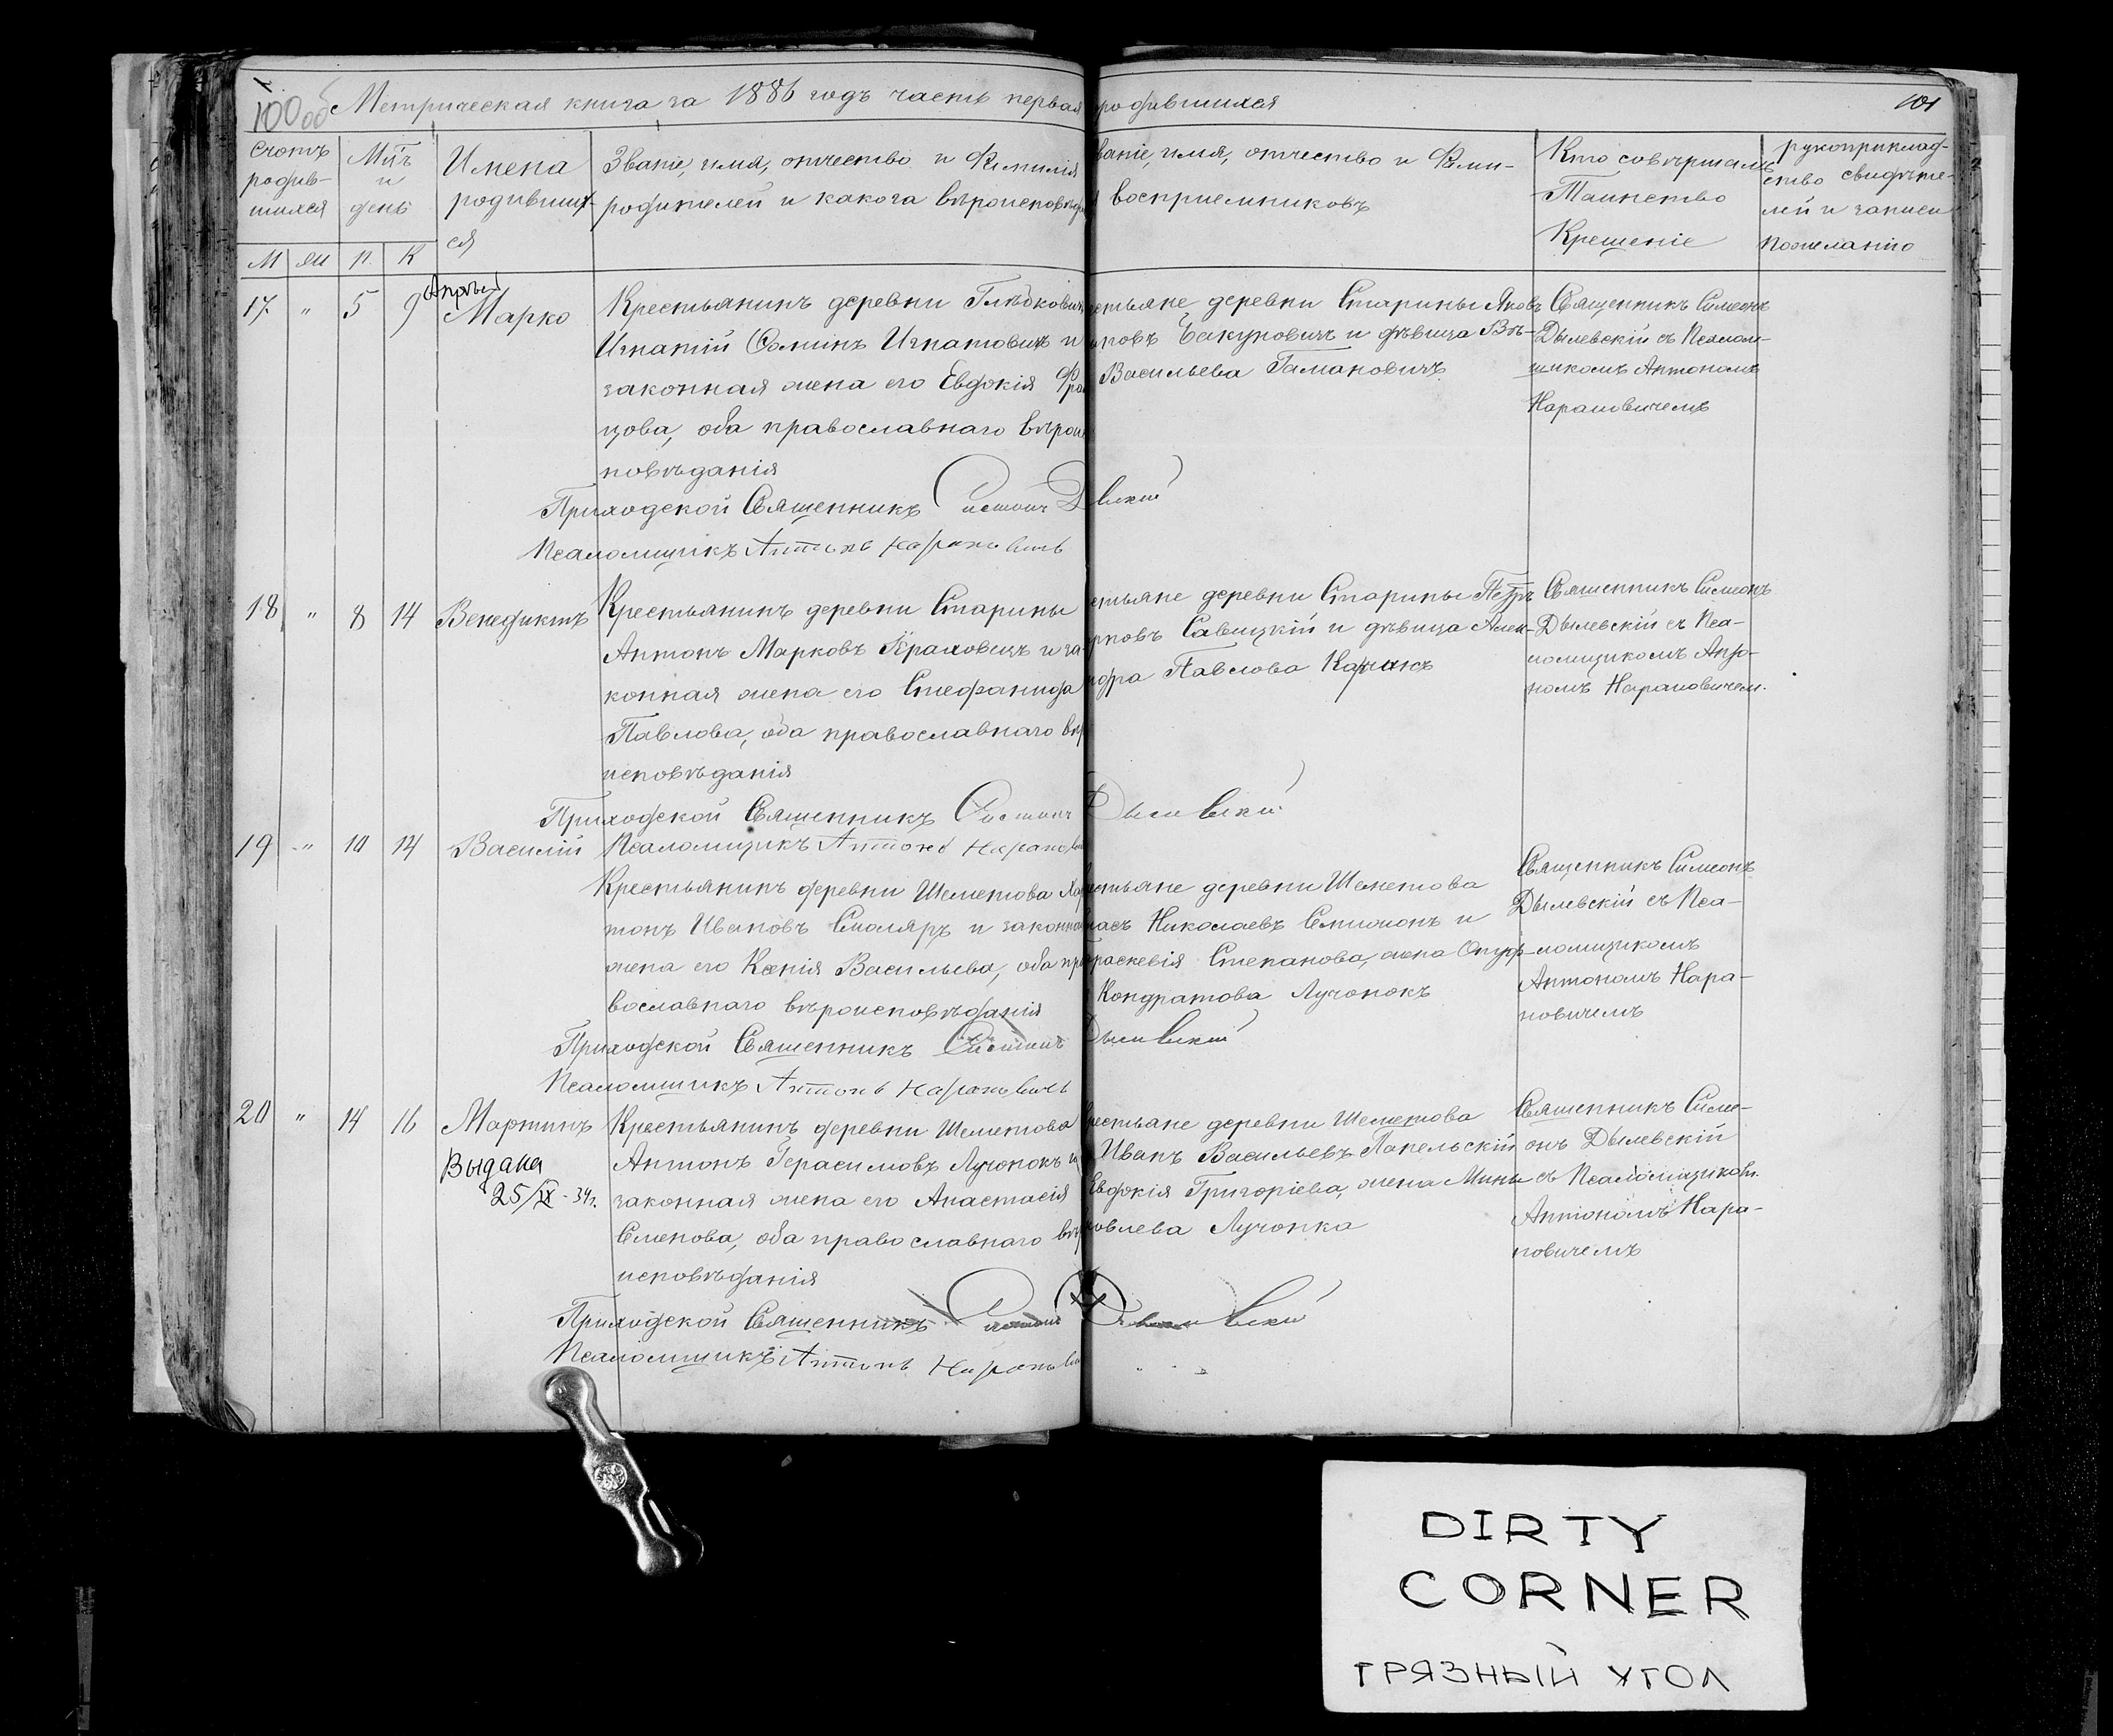 100 об Метрическая книга за 1886 годъ часть первая родившихся 101
Счотъ родив- шихся
Мѣсъ и день
Имена родивших- ся
Званіе, имя, отчество и Фамилія
родителей и какога вѣроисповѣд
званіе, имя, отчество и Фами-
восприемниковъ
Кто совершалъ
Таинство
Крещеніе
рукоприклад-
ство свидѣте-
лей и записи
пожеланію
М жи р. К
Апрѣль
17. " 5 9 Марко
Крестьянинъ деревни
Игнатій Игнатовичъ и
законная жена его Евдокія
цова, оба православнаго вѣроис
повѣданія
естьяне деревни Старины Яковъ
Бакуновичъ и дѣвица Вѣ-
Васильева Гамановичъ
Священникъ Симеонъ
Дылевскій съ Псалом-
щикомъ Антономъ
Нарановичемъ
Приходской Священникъ Симеонъ Д вскій
Псаломщикъ Антонъ Нарановичъ
18 " 8 14 Венедиктъ
Крестьянинъ деревни Старины
Антонъ Марковъ и за-
конная жена его Стефанида
Павлова, оба православнаго вѣр
исповѣданія
естьяне деревни Старины Петръ
рковъ Савицкій и дѣвица Алек-
ндра Павлова
Священникъ Симеонъ
Дылевскій съ Пса-
ломщикомъ Анто-
номъ Нарановичем.
Приходской Священникъ Симеонъ Дылевскій
19 " 10 14 Василій
Псаломщикъ Антонъ Нарановичъ
Крестьянинъ деревни Шеметова Хар
тонъ Ивановъ Столяръ и законная
жена его Ксенія Васильева, оба пра
вославнаго вѣроисповѣданія
естьяне деревни Шеметова
насъ Николаевъ и
раскевія Степанова, жена Онуф-
Кондратова Лучонокъ
Священникъ Симеонъ
Дылевскій съ Пса-
ломщикомъ
Антономъ Нара-
новичемъ
Приходской Священникъ Симеонъ Дылевскій
Псаломщикъ Антонъ Нарановичъ
20 " 14 16 Мартинъ
Выдана
25/IX - 34г.
Крестьянинъ деревни Шеметова
Антонъ Герасимовъ Лучонокъ и
законная жена его Анастасія
Семенова, оба православнаго вѣр
исповѣданія
рестьяне деревни Шеметова
Иванъ Васильевъ Папельскій
Евдокія Григоріева, жена Мины
ковлева Лучонка
Священникъ Симе-
онъ Дылевскій
съ Псаломщиком.
Антономъ Нара-
новичемъ
Приходской Священникъ Симеонъ Дылевскій
Псаломщикъ Антонъ Нарановичъ
DIRTY
CORNER
ГРЯЗНЫЙ УГОЛ